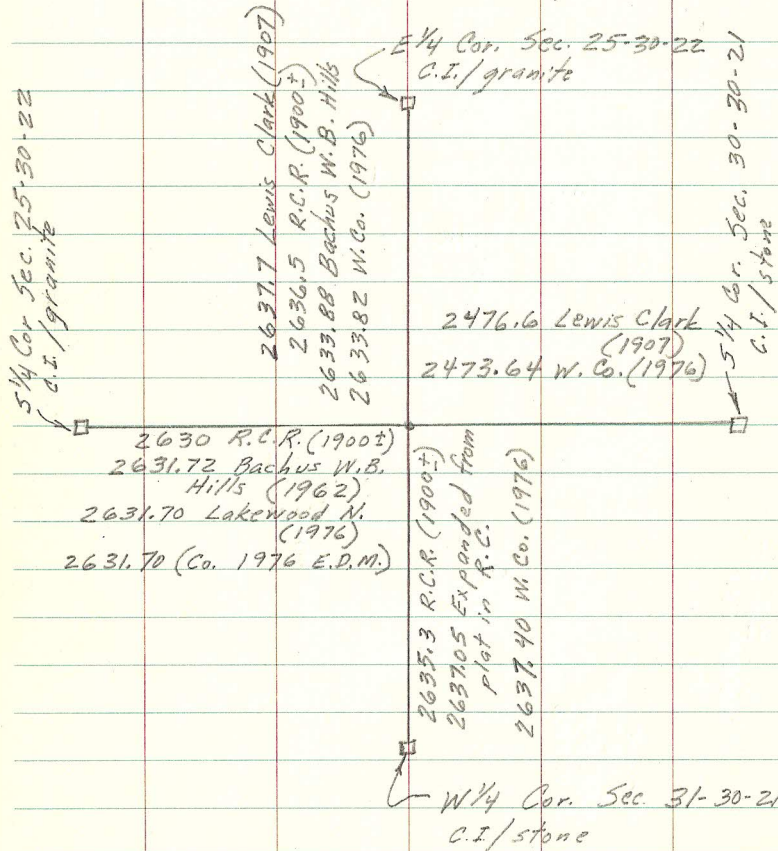 E 1/4 Cor. Sec. 25-30-22
C.I./granite
S 1/4 Cor Sec. 25-30-22
C.I./granite
2637.7 Lewis Clark (1907)
2636.5 R.C.R. (1900±)
2633.88 Bachus W.B. Hills
2633.82 W.Co. (1976)
S 1/4 Cor. Sec. 30-30-21
C.I./stone
2476.6 Lewis Clark
(1907)
2473.64 W. Co. (1976)
2630 R.C.R. (1900±)
2631.72 Bachus W.B.
Hills (1962)
2631.70 Lakewood N.
(1976)
2631.70 (Co. 1976 E.D.M.)
2635.3 R.C.R. (1900±)
2637.05 Expanded from
plat in R.C.
2637.40 W.Co. (1976)
W 1/4 Cor. Sec. 31-30-21
C.I./stone